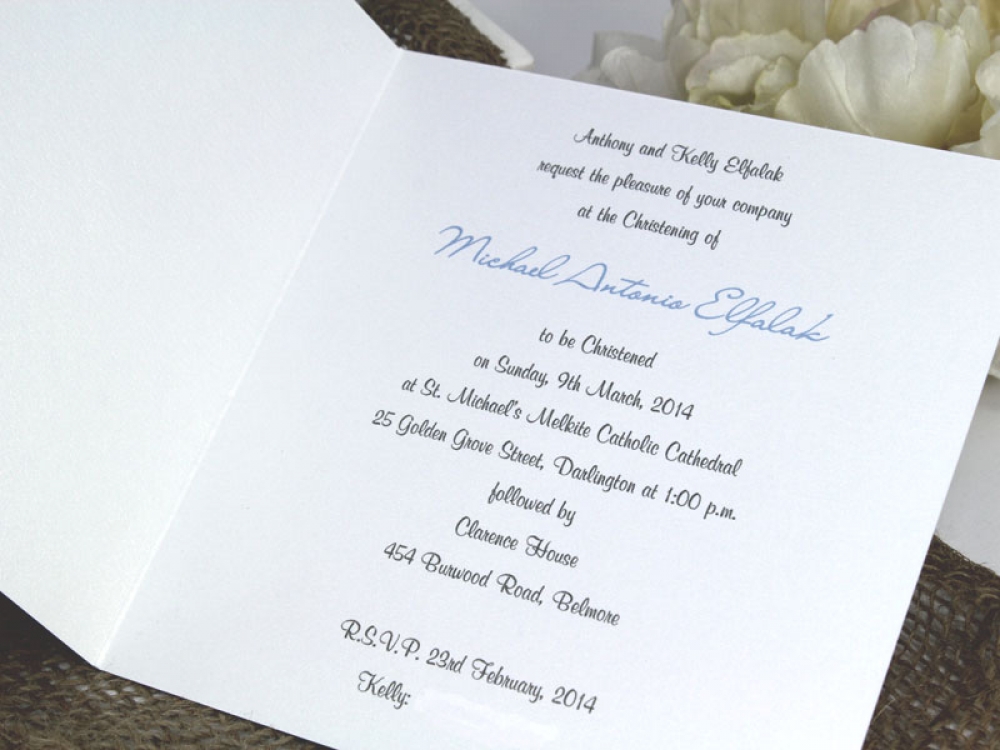 Anthony and Kelly Elfalak
request the pleasure of your company
at the Christening of
Michael Antonio Elfalak
to be Christened
on Sunday, 9th March, 2014
at St. Michael's Melkite Catholic Cathedral
25 Golden Grove Street, Darlington at 1:00 p.m.
followed by
Clarence House
454 Burwood Road, Belmore
R.S.V.P. 23rd February, 2014
Kelly: